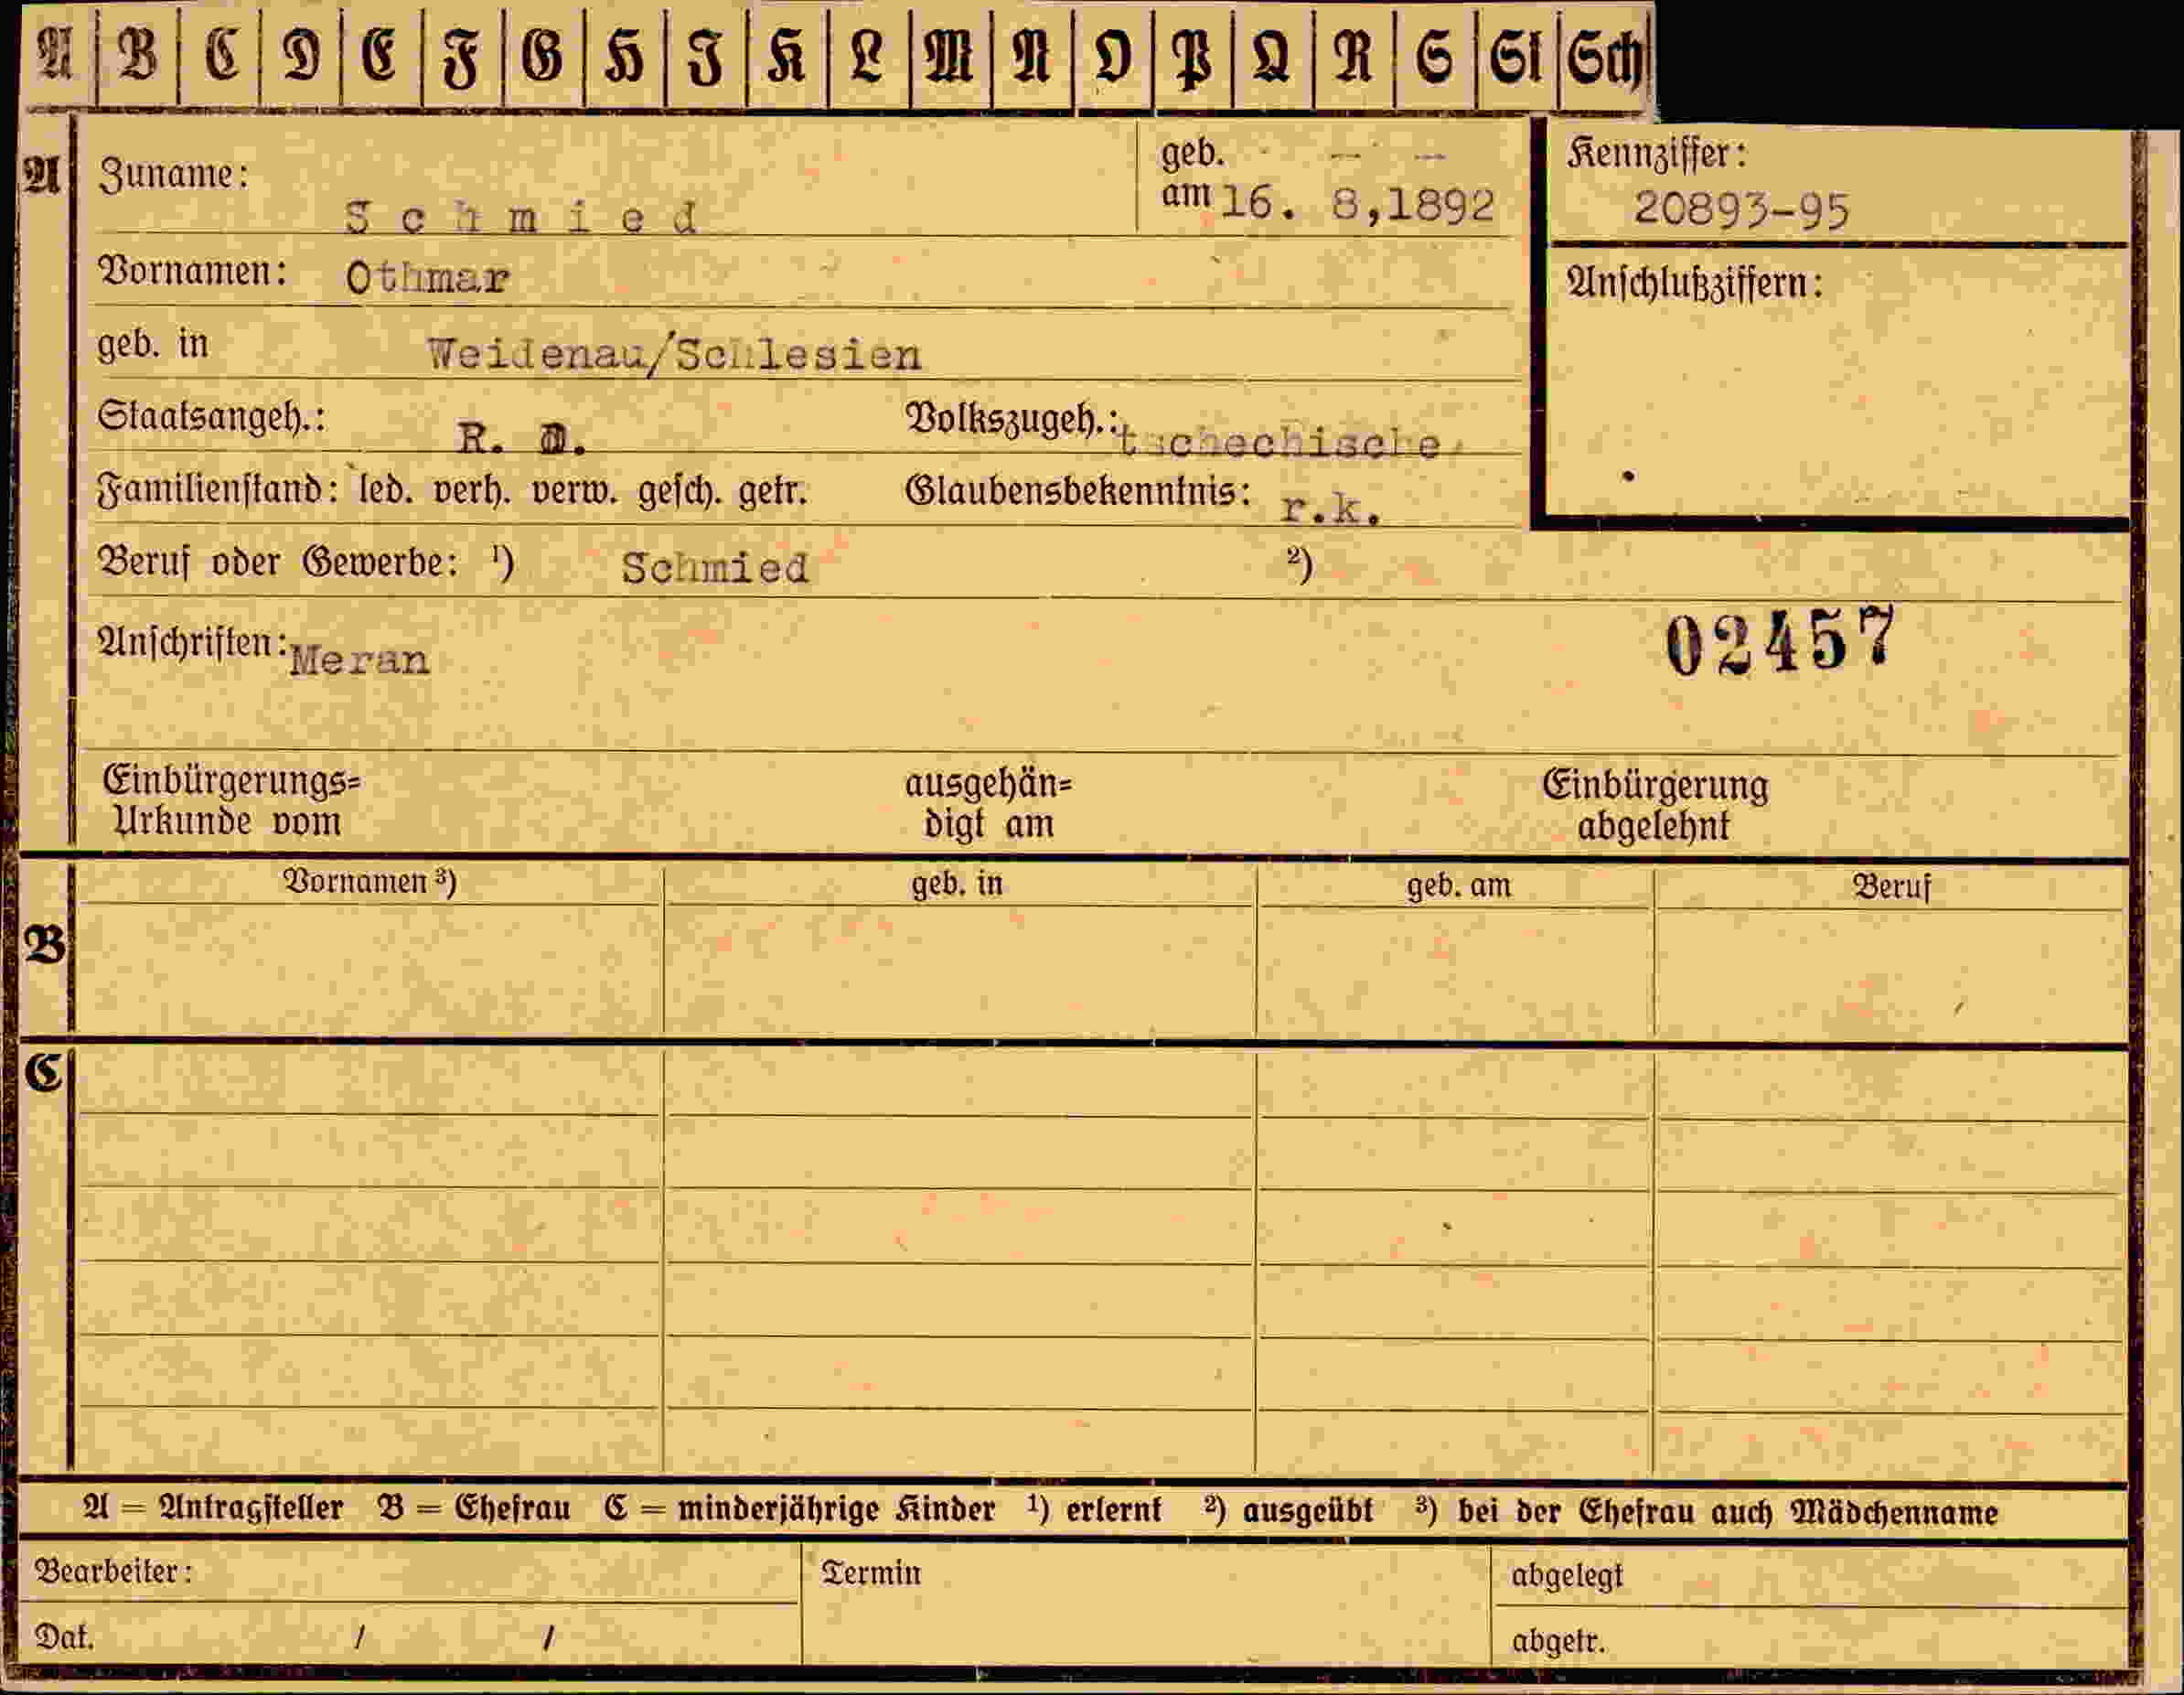 A B C D E F G H I K L M N O P Q R S St Sch
A
Zuname: Schmied
geb. am 16. 8,1892
Kennziffer:
20893-95
Vornamen: Othmar
Anschlußziffern:
geb. in Weidenau/Schlesien
Staatsangeh.: R. D. Volkszugeh.: tschechische
Familienstand: led. verh. verw. gesch. getr. Glaubensbekenntnis: r.k.
Beruf oder Gewerbe: ¹) Schmied ²)
Anschriften: Meran
02457
Einbürgerungs= ausgehän= Einbürgerung
Urkunde vom digt am abgelehnt
Vornamen ³) geb. in geb. am Beruf
B
C
A = Antragsteller B = Ehefrau C = minderjährige Kinder ¹) erlernt ²) ausgeübt ³) bei der Ehefrau auch Mädchenname
Bearbeiter: Termin abgelegt
Dat. / / abgetr.